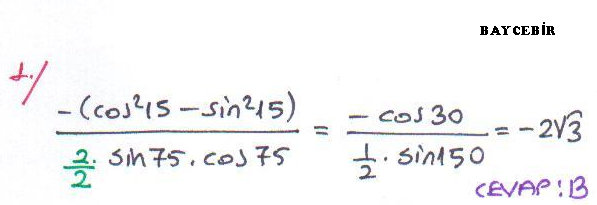 BAYCEBİR
1./
-(cos²15 - sin²15) / (2/2 · sin75 · cos75) = -cos30 / (1/2 · sin150) = -2√3
CEVAP: B